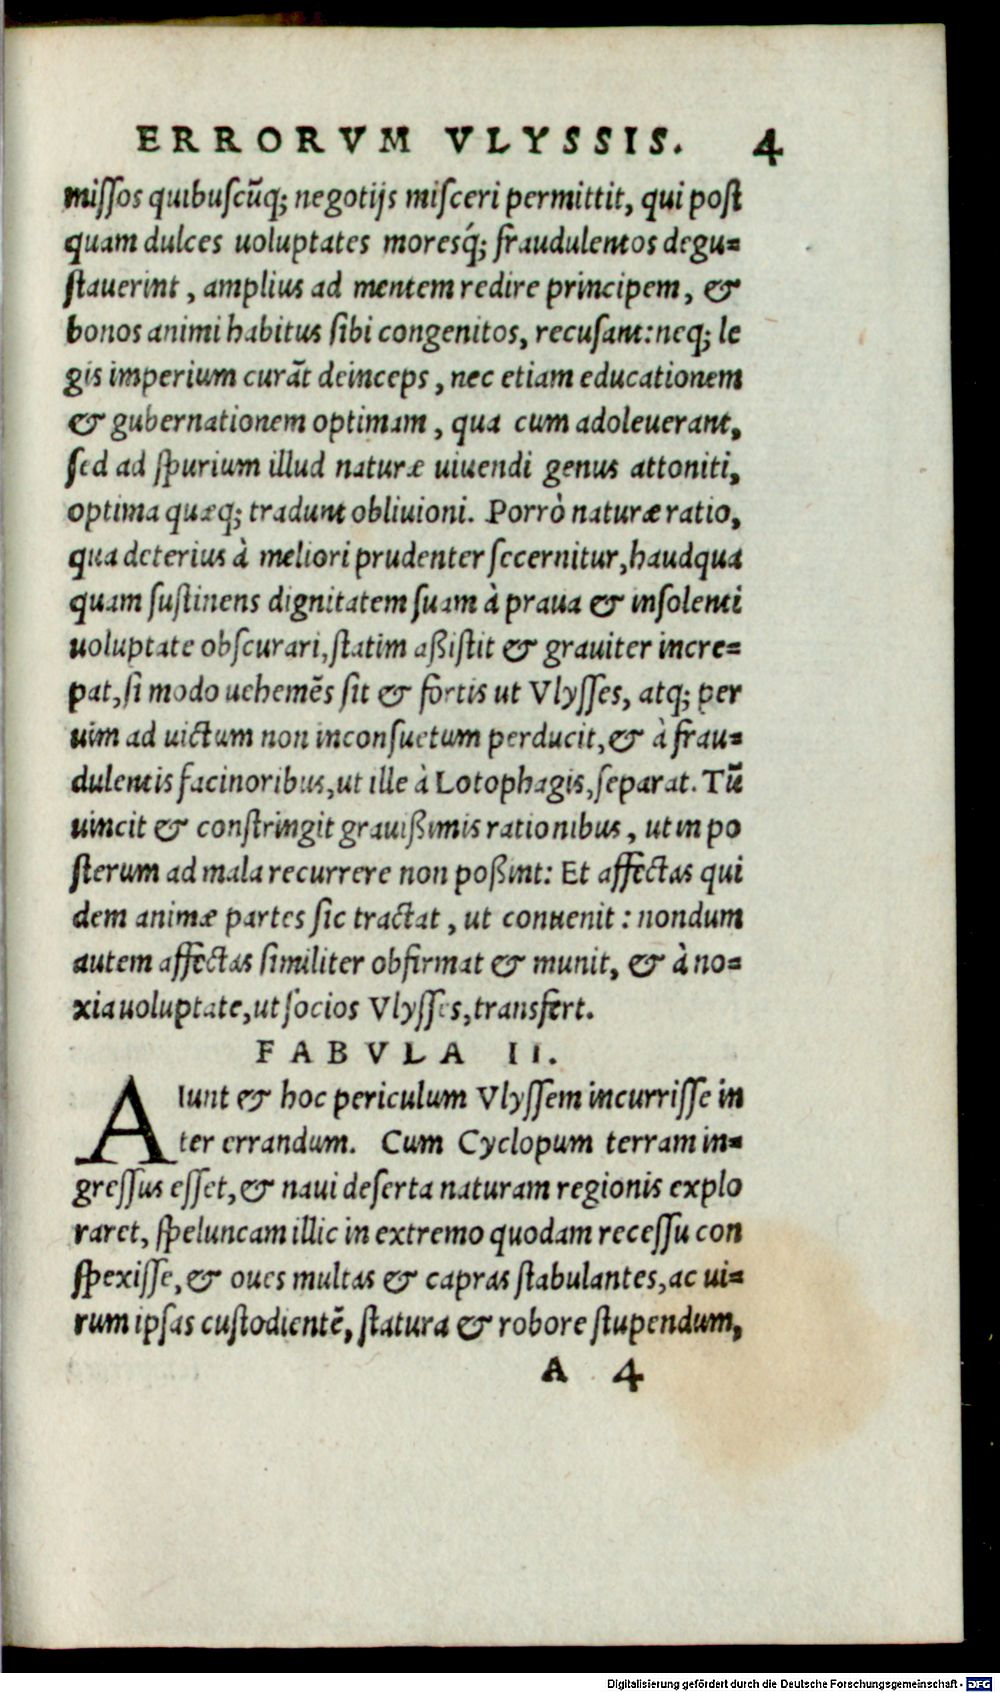 ERRORVM VLYSSIS. 4
miſſos quibuſcũq; negotijs miſceri permittit, qui poſt
quam dulces uoluptates moresq́; fraudulentos degu=
ſtauerint, amplius ad mentem redire principem, &
bonos animi habitus ſibi congenitos, recuſant: neq; le
gis imperium curãt deinceps, nec etiam educationem
& gubernationem optimam, qua cum adoleuerant,
ſed ad ſpurium illud naturæ uiuendi genus attoniti,
optima quæq; tradunt obliuioni. Porrò naturæ ratio,
qua deterius à meliori prudenter ſecernitur, haudqua
quam ſuſtinens dignitatem ſuam à praua & inſolenti
uoluptate obſcurari, ſtatim aßiſtit & grauiter incre=
pat, ſi modo uehemẽs ſit & fortis ut Vlyſſes, atq; per
uim ad uictum non inconſuetum perducit, & à frau=
dulentis facinoribus, ut ille à Lotophagis, ſeparat. Tũ
uincit & conſtringit grauißimis rationibus, ut in po
ſterum ad mala recurrere non poßint: Et affectas qui
dem animæ partes ſic tractat, ut conuenit: nondum
autem affectas ſimiliter obfirmat & munit, & à no=
xia uoluptate, ut ſocios Vlyſſes, transfert.
FABVLA II.
AIunt & hoc periculum Vlyſſem incurriſſe in
ter errandum. Cum Cyclopum terram in=
greſſus eſſet, & naui deſerta naturam regionis explo
raret, ſpeluncam illic in extremo quodam receſſu con
ſpexiſſe, & oues multas & capras ſtabulantes, ac ui=
rum ipſas cuſtodientẽ, ſtatura & robore ſtupendum,
A 4
Digitalisierung gefördert durch die Deutsche Forschungsgemeinschaft - DFG